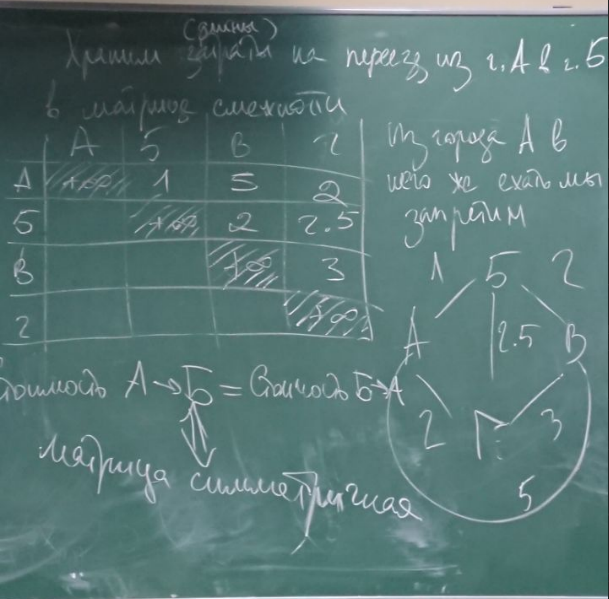 (длины)
Храним затраты на переезд из г. А в г. Б
в матрице смежности
А Б В Г
А +∞ 1 5 2
Б +∞ 2 2.5
В +∞ 3
Г +∞
Из города А в
него же ехать мы
запретим
1 Б 2
А 2.5 В
2 Г 3
5
Стоимость А → Б = Стоимость Б → А
Матрица симметричная